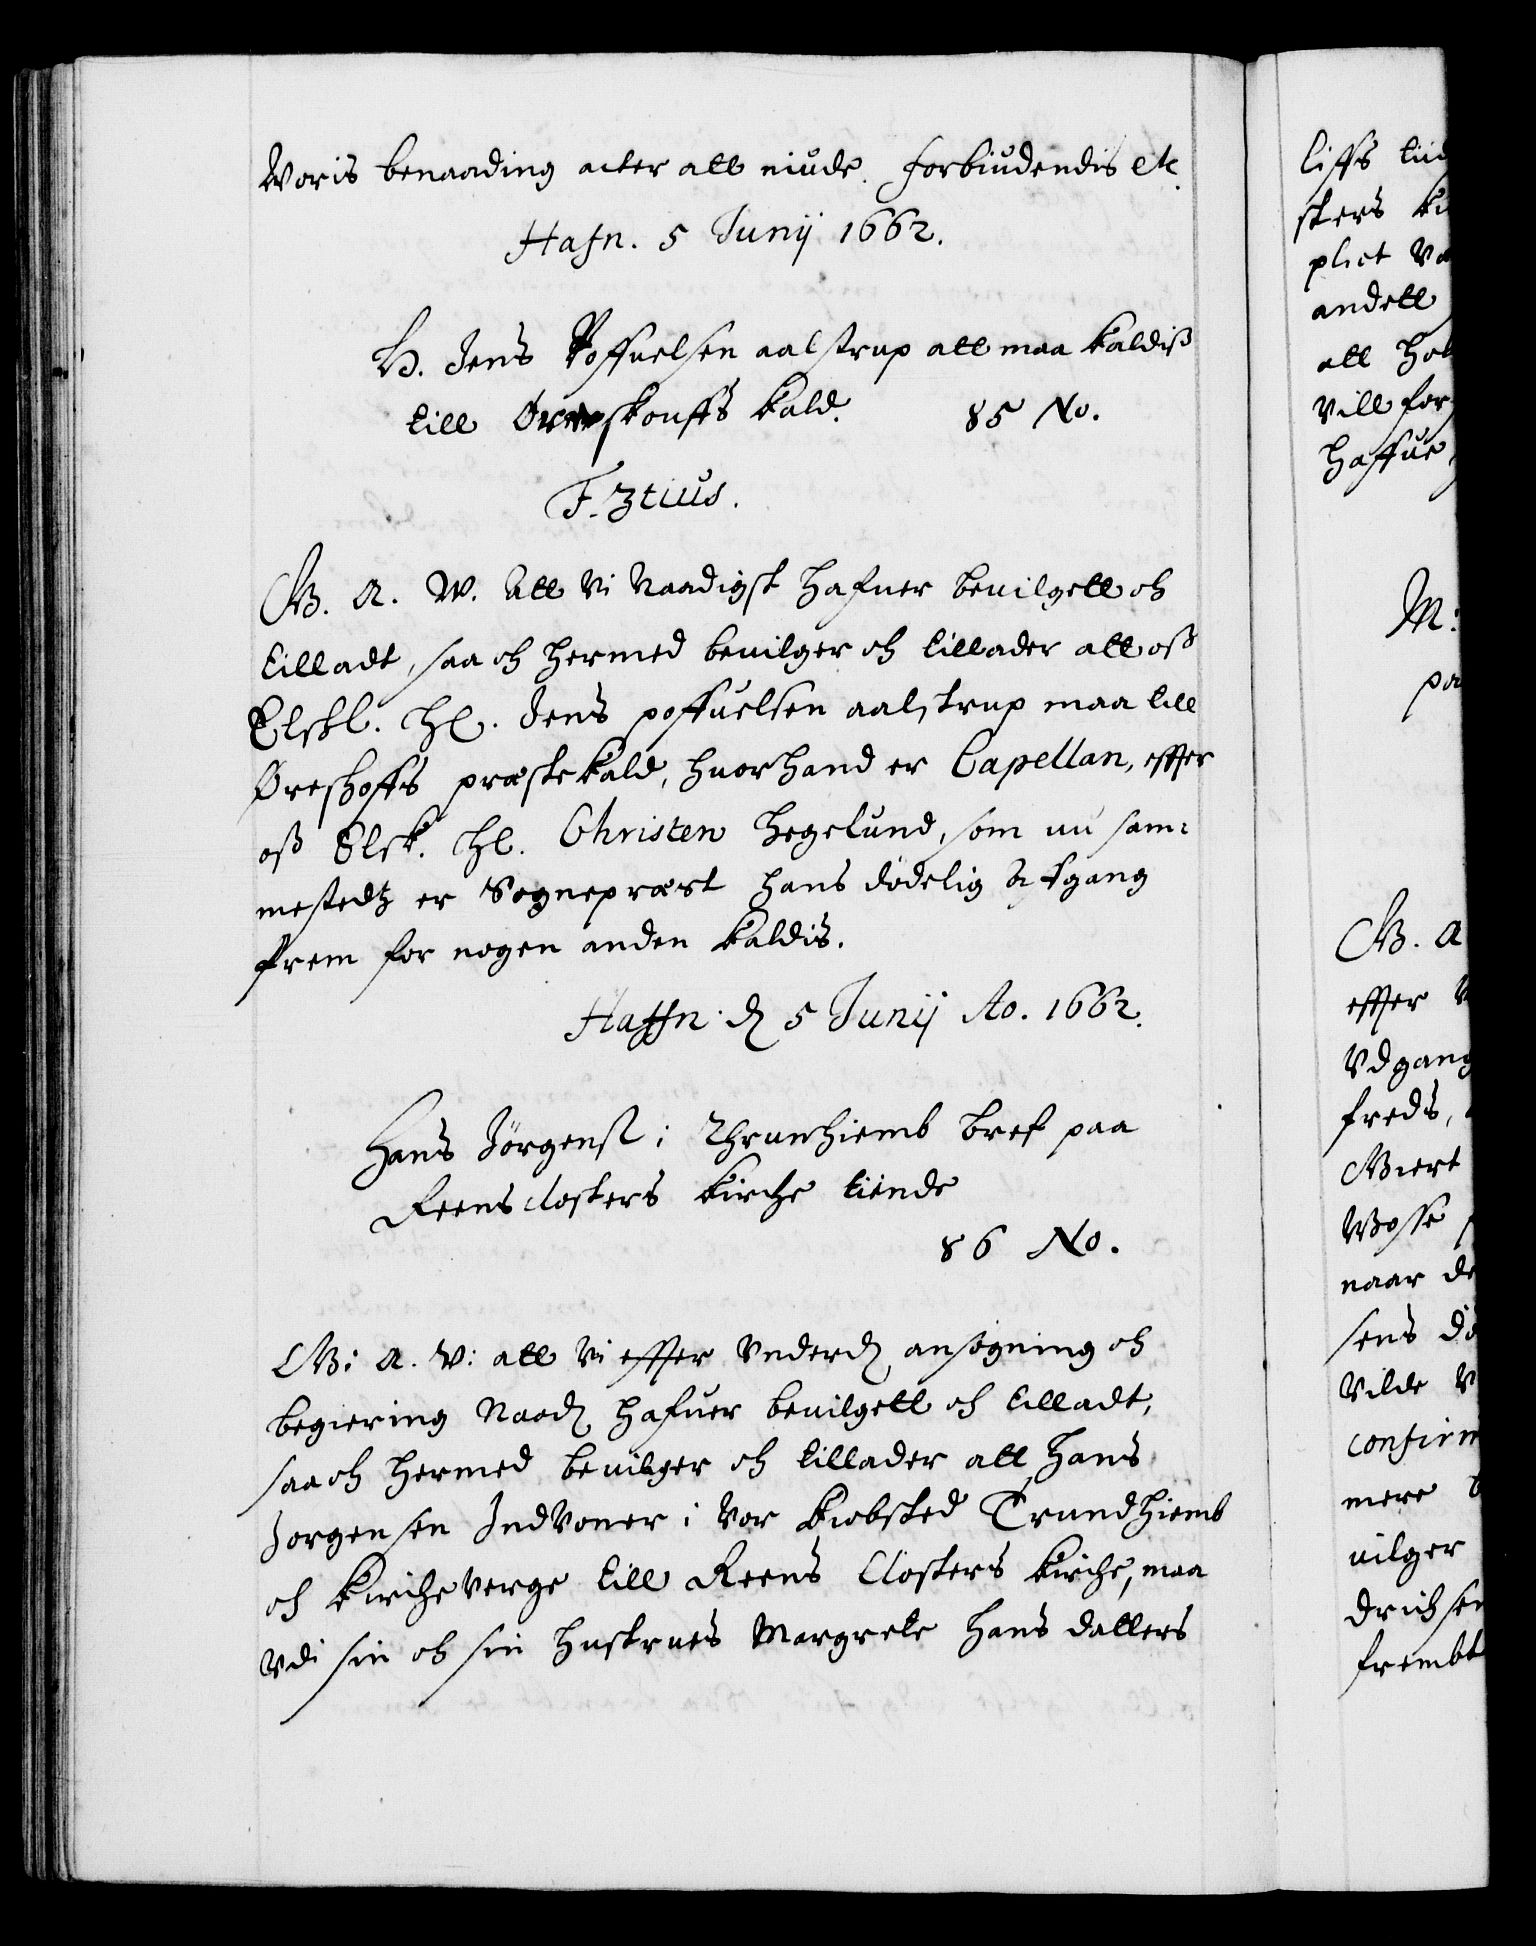 Woris benaading acter att niude. forbiudendis etc.
Hafn. 5 Junij 1662.
H. Jens Poffuelsen aalstrup att maa kaldiß
till skouffs kald. 85 No.
F. 3tius.
G. A. W. Att Vi Naadigst hafuer beuilgett och
tilladt, saa och hermed beuilger och tillader att oß
Elskl. Hl. Jens poffuelsen aalstrup maa till
Øreskoffs præste kald, huor hand er Capellan, effter
oß Elsk. Hl. Christen Hegelund, som nu sam-
mestedtz er Sognepræst hans dödelig Afgang
frem for nogen anden kaldis.
Haffn. d 5 Junij Ao. 1662.
Hans Jörgenß i Thrunhiemb bref paa
Reens closters Kirche tiende
86 No.
G: A. V: att Vi effter Vnderd ansögning och
begiering Naad hafuer beuilgett och tilladt,
saa och hermed beuilger och tillader att Hans
Jorgensen Indvoner i Vor kiobsted Trundhiemb
och Kircheverge till Reens Closters Kirche, maa
Vdi sin och sin hustrues Margrete Hans datters
liffs tiid
sters
plict
andett
att
Vill for
haffue
M:
pa
G. A
effter
Vdgang
freds,
Giert
Bosse
naar de
sens dö
Vilde
confirm
mere
uilger
drichsen
frembt